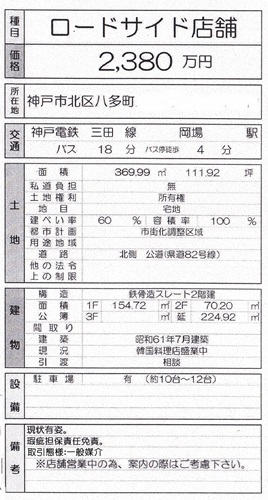 種目 ロードサイド店舗
価格 2,380 万円
所在地 神戸市北区八多町
交通 神戸電鉄 三田 線 岡場 駅
バス 18 分 バス停徒歩 4 分
土地
面積 369.99 ㎡ 111.92 坪
私道負担 無
土地権利 所有権
地目 宅地
建ぺい率 60 % 容積率 100 %
都市計画 市街化調整区域
用途地域
道路 北側 公道(県道82号線)
他の法令
上の制限
建物
構造 鉄骨造スレート2階建
面積 1F 154.72 ㎡ 2F 70.20 ㎡
公簿 3F ㎡ 延 224.92 ㎡
間取り
建築 昭和61年7月建築
現況 韓国料理店盛業中
引渡 相談
設備 駐車場 有 (約10台~12台)
備考
現状有姿。
瑕疵担保責任免責。
取引態様:一般媒介
※店舗営業中の為、案内の際はご考慮下さい。